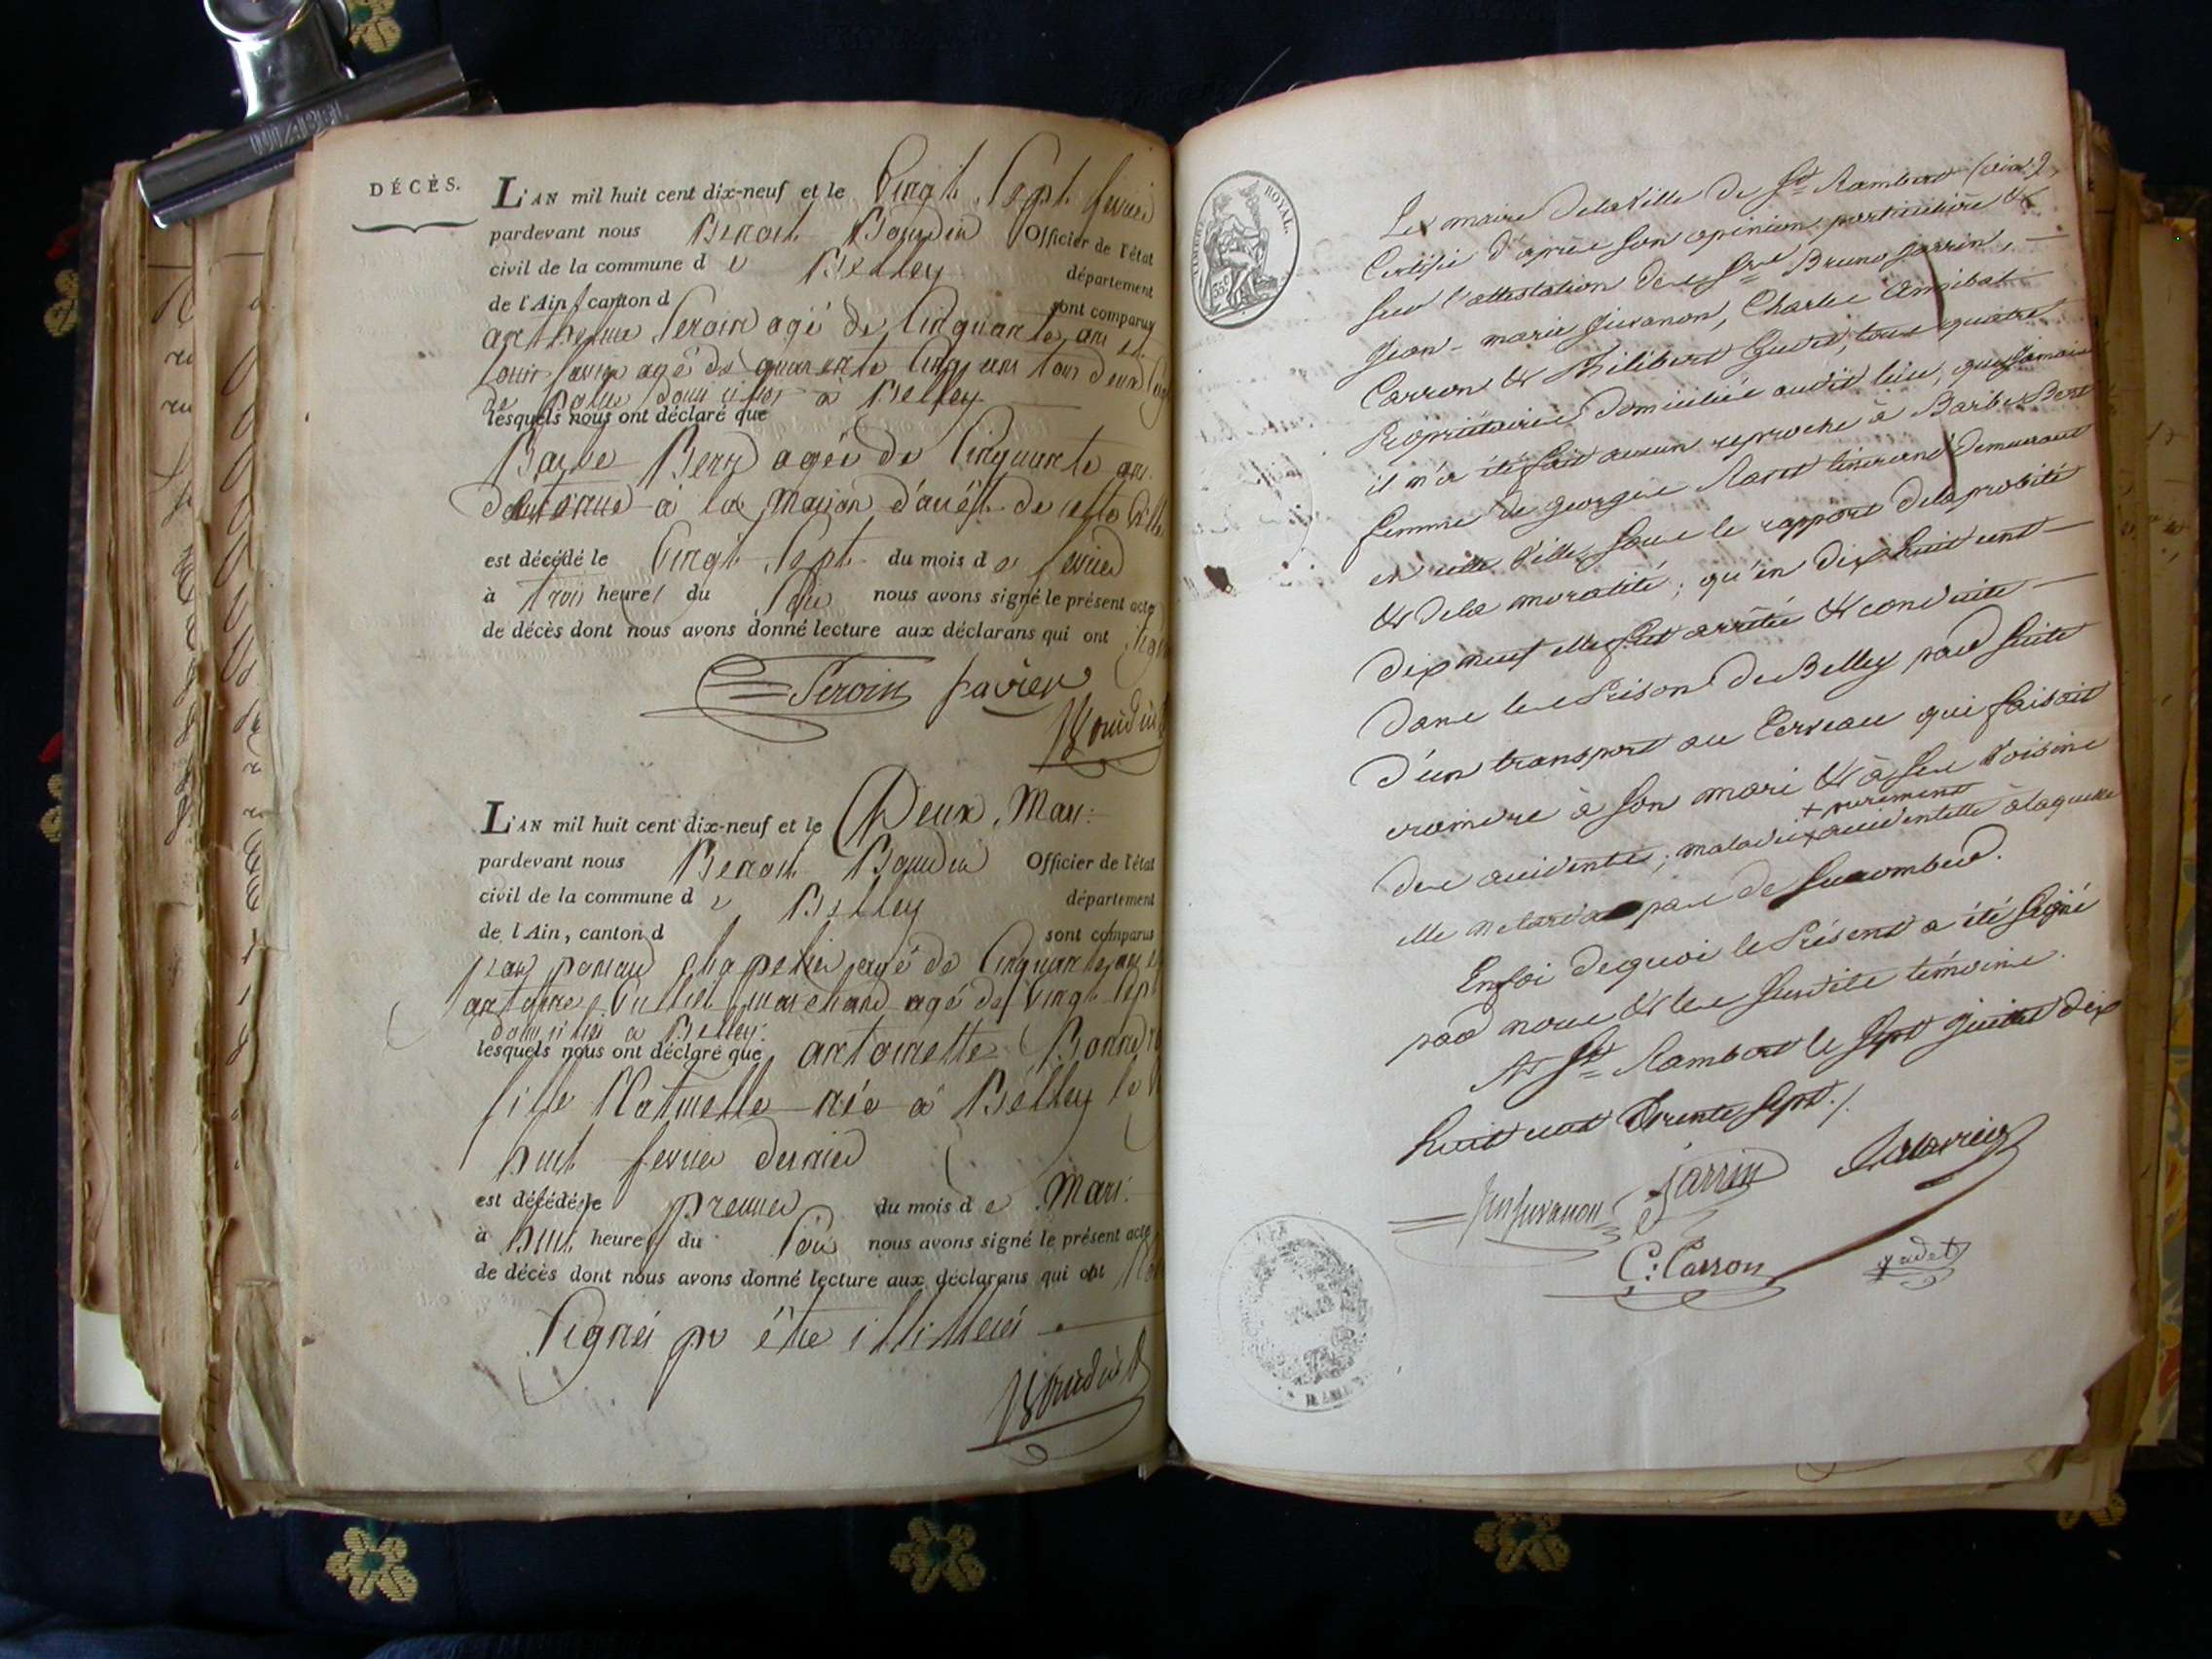 DÉCÈS.
L'AN mil huit cent dix-neuf et le Vingt Sept fevrier
pardevant nous Benoit Baudin Officier de l'état
civil de la commune de Belley département
de l'Ain, canton d sont comparus
anthelme Peroin agé de Cinquante ans et
Louis favier agé de quarante Cinq ans tous deux
de Police domiciliés à Belley
lesquels nous ont déclaré que
Barbe agée de Cinquante ans
detenue à la Maison d'arrêt de cette Ville
est décédé le Vingt Sept du mois de fevrier
à Trois heures du Soir nous avons signé le présent acte
de décès dont nous avons donné lecture aux déclarans qui ont
Peroin favier
Baudin
L'AN mil huit cent dix-neuf et le Deux Mars
pardevant nous Benoit Baudin Officier de l'état
civil de la commune de Belley département
de l'Ain, canton d sont comparus
chapelier agé de Cinquante ans et
antoine marchand agé de Vingt Sept
domiciliés à Belley.
lesquels nous ont déclaré que antoinette
fille Naturelle née à Belley le
huit fevrier dernier
est décédé le premier du mois de Mars
à huit heures du Soir nous avons signé le présent acte
de décès dont nous avons donné lecture aux déclarans qui ont Non
Signés pr être illitterés
Baudin
TIMBRE ROYAL.
Le maire de la Ville de St Rambert (ain),
Certifie d'après son opinion particulière &
sur l'attestation des Srs Bruno Jarrin,
Jean-marie Juvanon, Charles Annibal
Carron & Philibert tous quatre
Propriétaires domiciliés audit lieu, que jamais
il n'a été fait aucun reproche à Barbe
femme de georges demeurant
en cette Ville, sous le rapport de la probité
& de la moralité; qu'en dix huit cent
dix neuf elle fut arrêtée & conduite
dans les Prisons de Belley par suite
d'un transport au Cerveau qui faisait
craindre à son mari & à ses Voisins
+ purement
des accidents; maladie + accidentelle à laquelle
elle ne tarda pas de succomber.
En foi de quoi le Présent a été signé
par nous & les susdits témoins.
A St Rambert le sept juillet dix
huit cent trente sept./.
Juvanon Jarrin
C: Carron